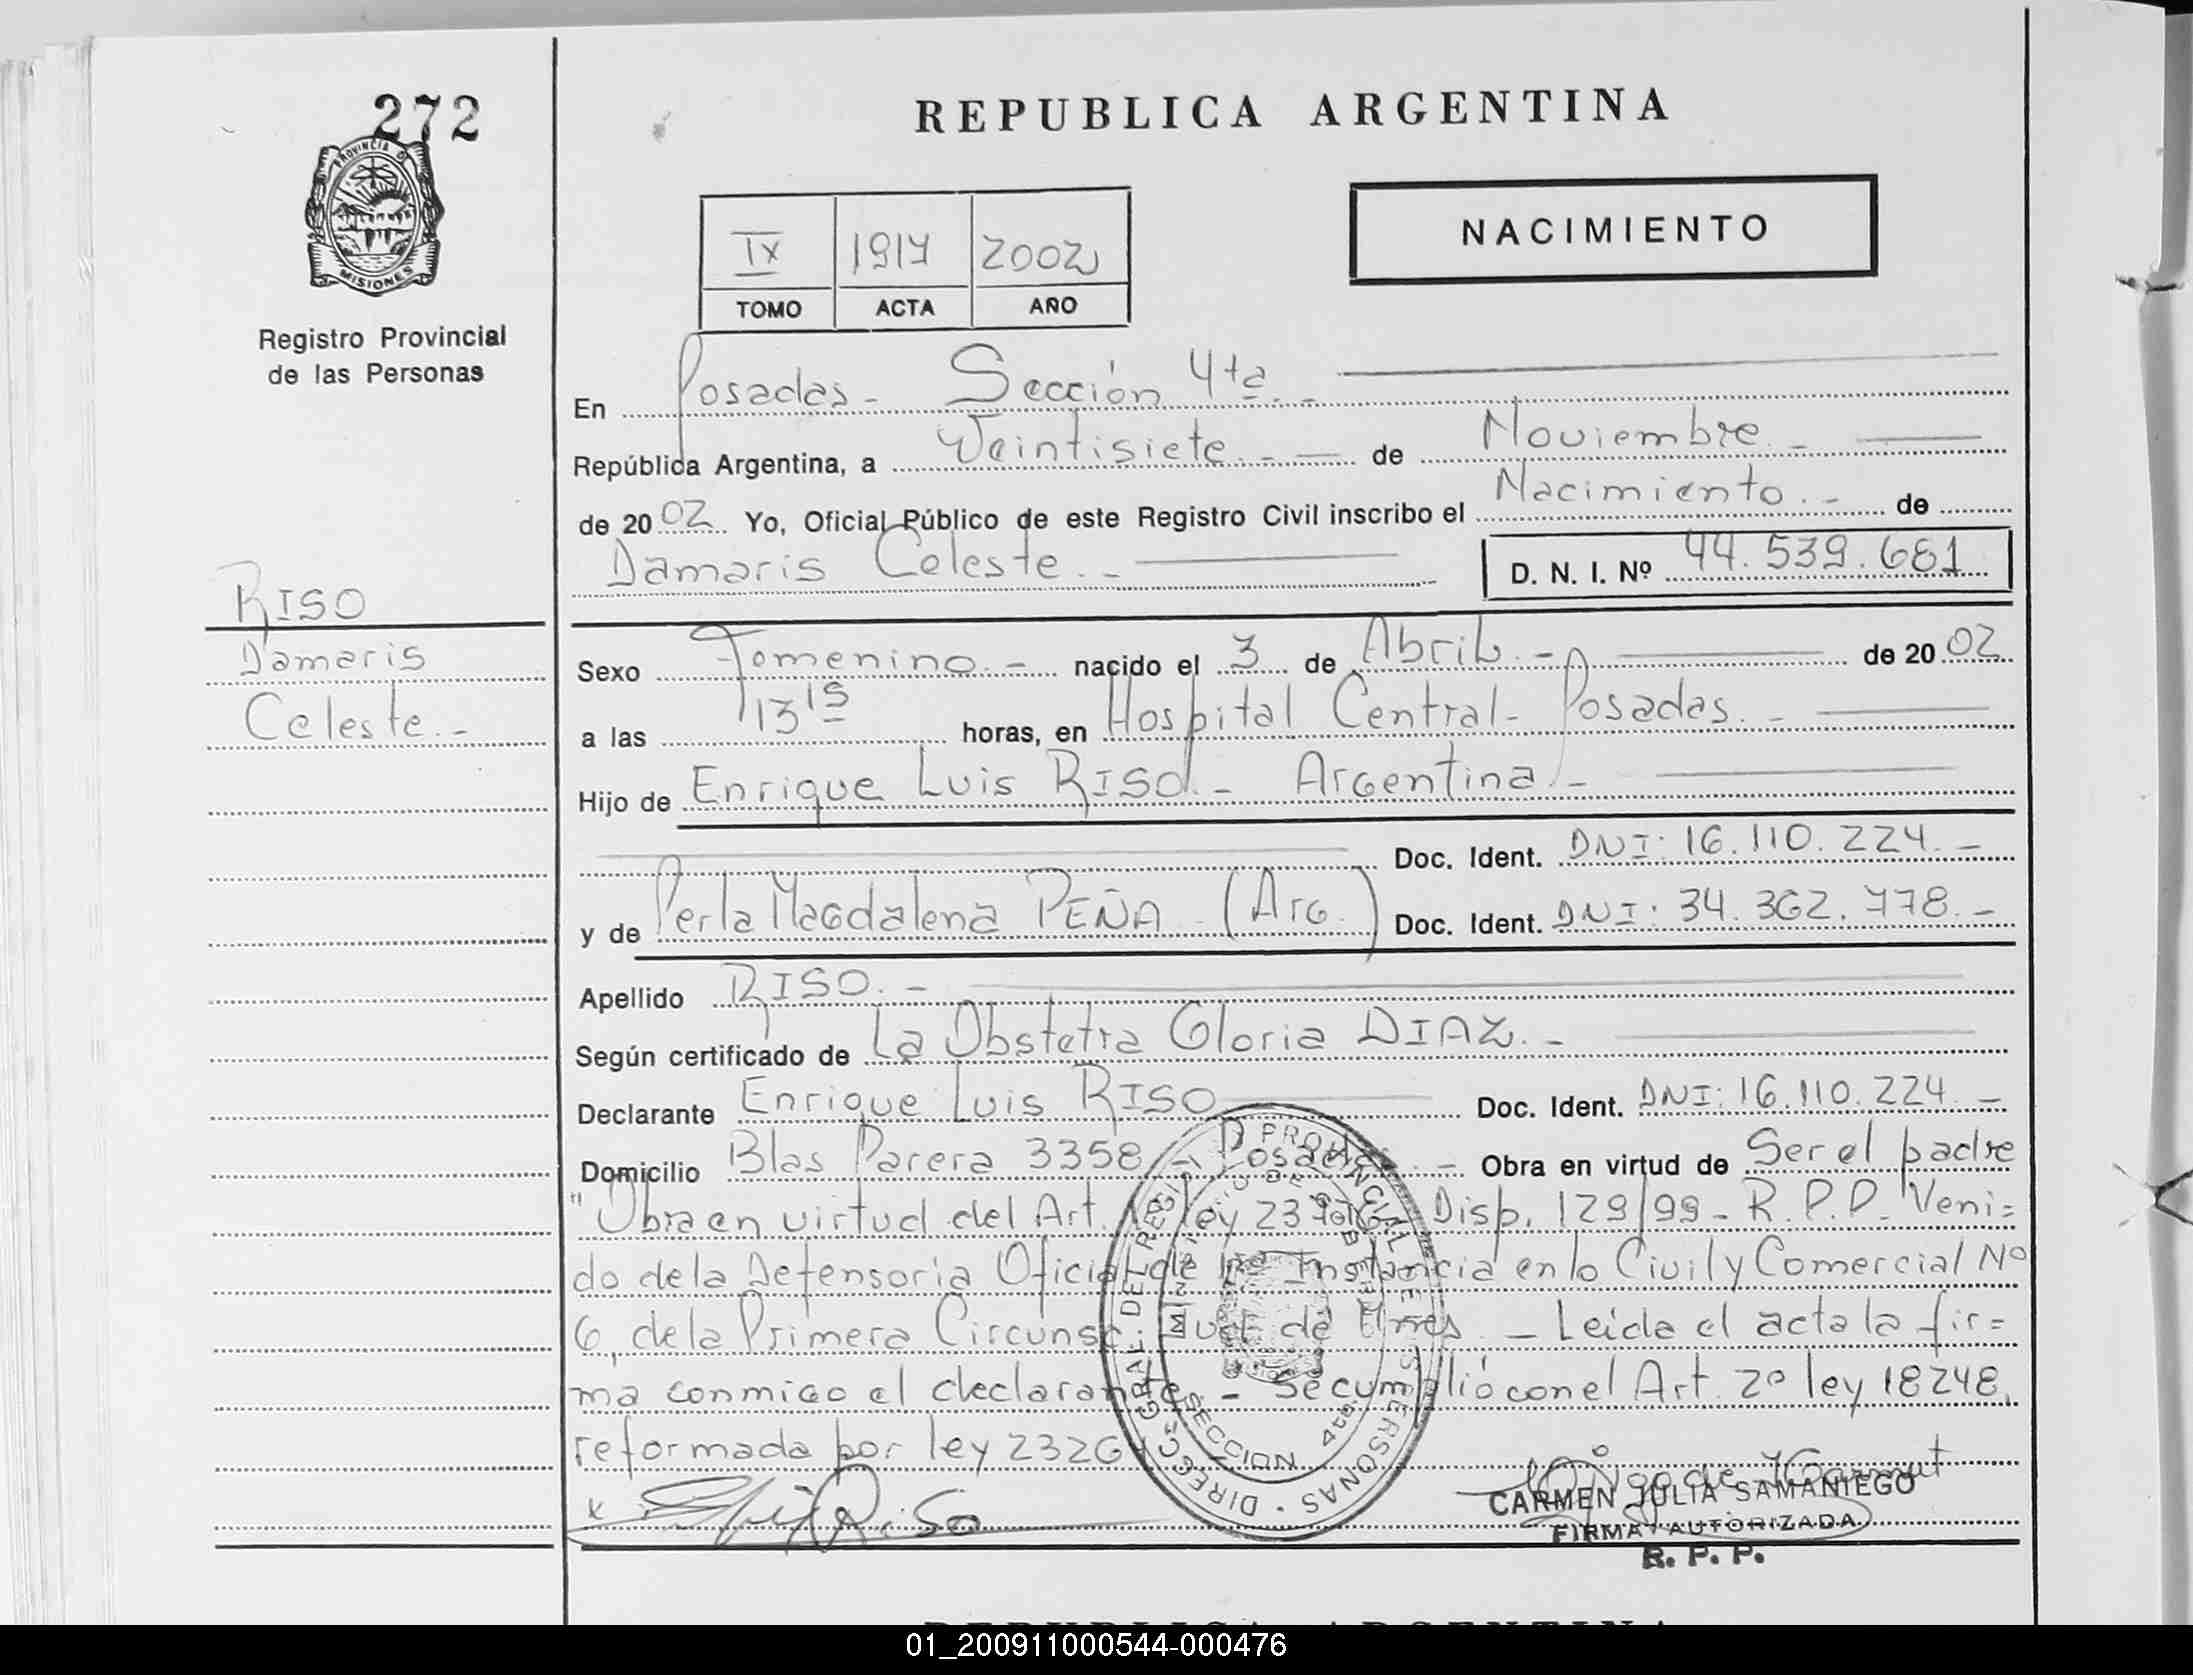 272
REPUBLICA ARGENTINA
PROVINCIA D
MISIONES
Registro Provincial
de las Personas
NACIMIENTO
IX 1917 2002
TOMO ACTA AÑO
En Posadas - Sección 4ta. -
República Argentina, a Veintisiete. - de Noviembre. -
de 2002 Yo, Oficial Público de este Registro Civil inscribo el Nacimiento. - de
Damaris Celeste. - D. N. I. Nº 44.539.681
RISO
Damaris
Celeste. -
Sexo Femenino. - nacido el 3 de Abril. - de 2002
a las 13 15 horas, en Hospital Central - Posadas. -
Hijo de Enrique Luis RISO. - Argentina. -
Doc. Ident. DNI: 16.110.224. -
y de Perla Magdalena PEÑA - (Arg.) Doc. Ident. DNI: 34.362.778. -
Apellido RISO. -
Según certificado de La Obstetra Gloria DIAZ. -
Declarante Enrique Luis RISO Doc. Ident. DNI: 16.110.224. -
Domicilio Blas Parera 3358 - Posadas. - Obra en virtud de Ser el padre
"Obra en virtud del Art. ley 23 Disp. 129/99 - R.P.P. Veni=
do de la Defensoria Oficial de Instancia en lo Civil y Comercial Nº
6, de la Primera Circunsc. Jud. de - Leida el acta la fir=
ma conmigo el declarante. - Se cumplió con el Art. 2º ley 18248,
reformada por ley 2326
DIRECC. GRAL. DEL REG. PROVINCIAL DE LAS PERSONAS
SECCION 4ta.
x Riso
CARMEN JULIA SAMANIEGO
FIRMA AUTORIZADA
R. P. P.
REPUBLICA ARGENTINA
01_200911000544-000476